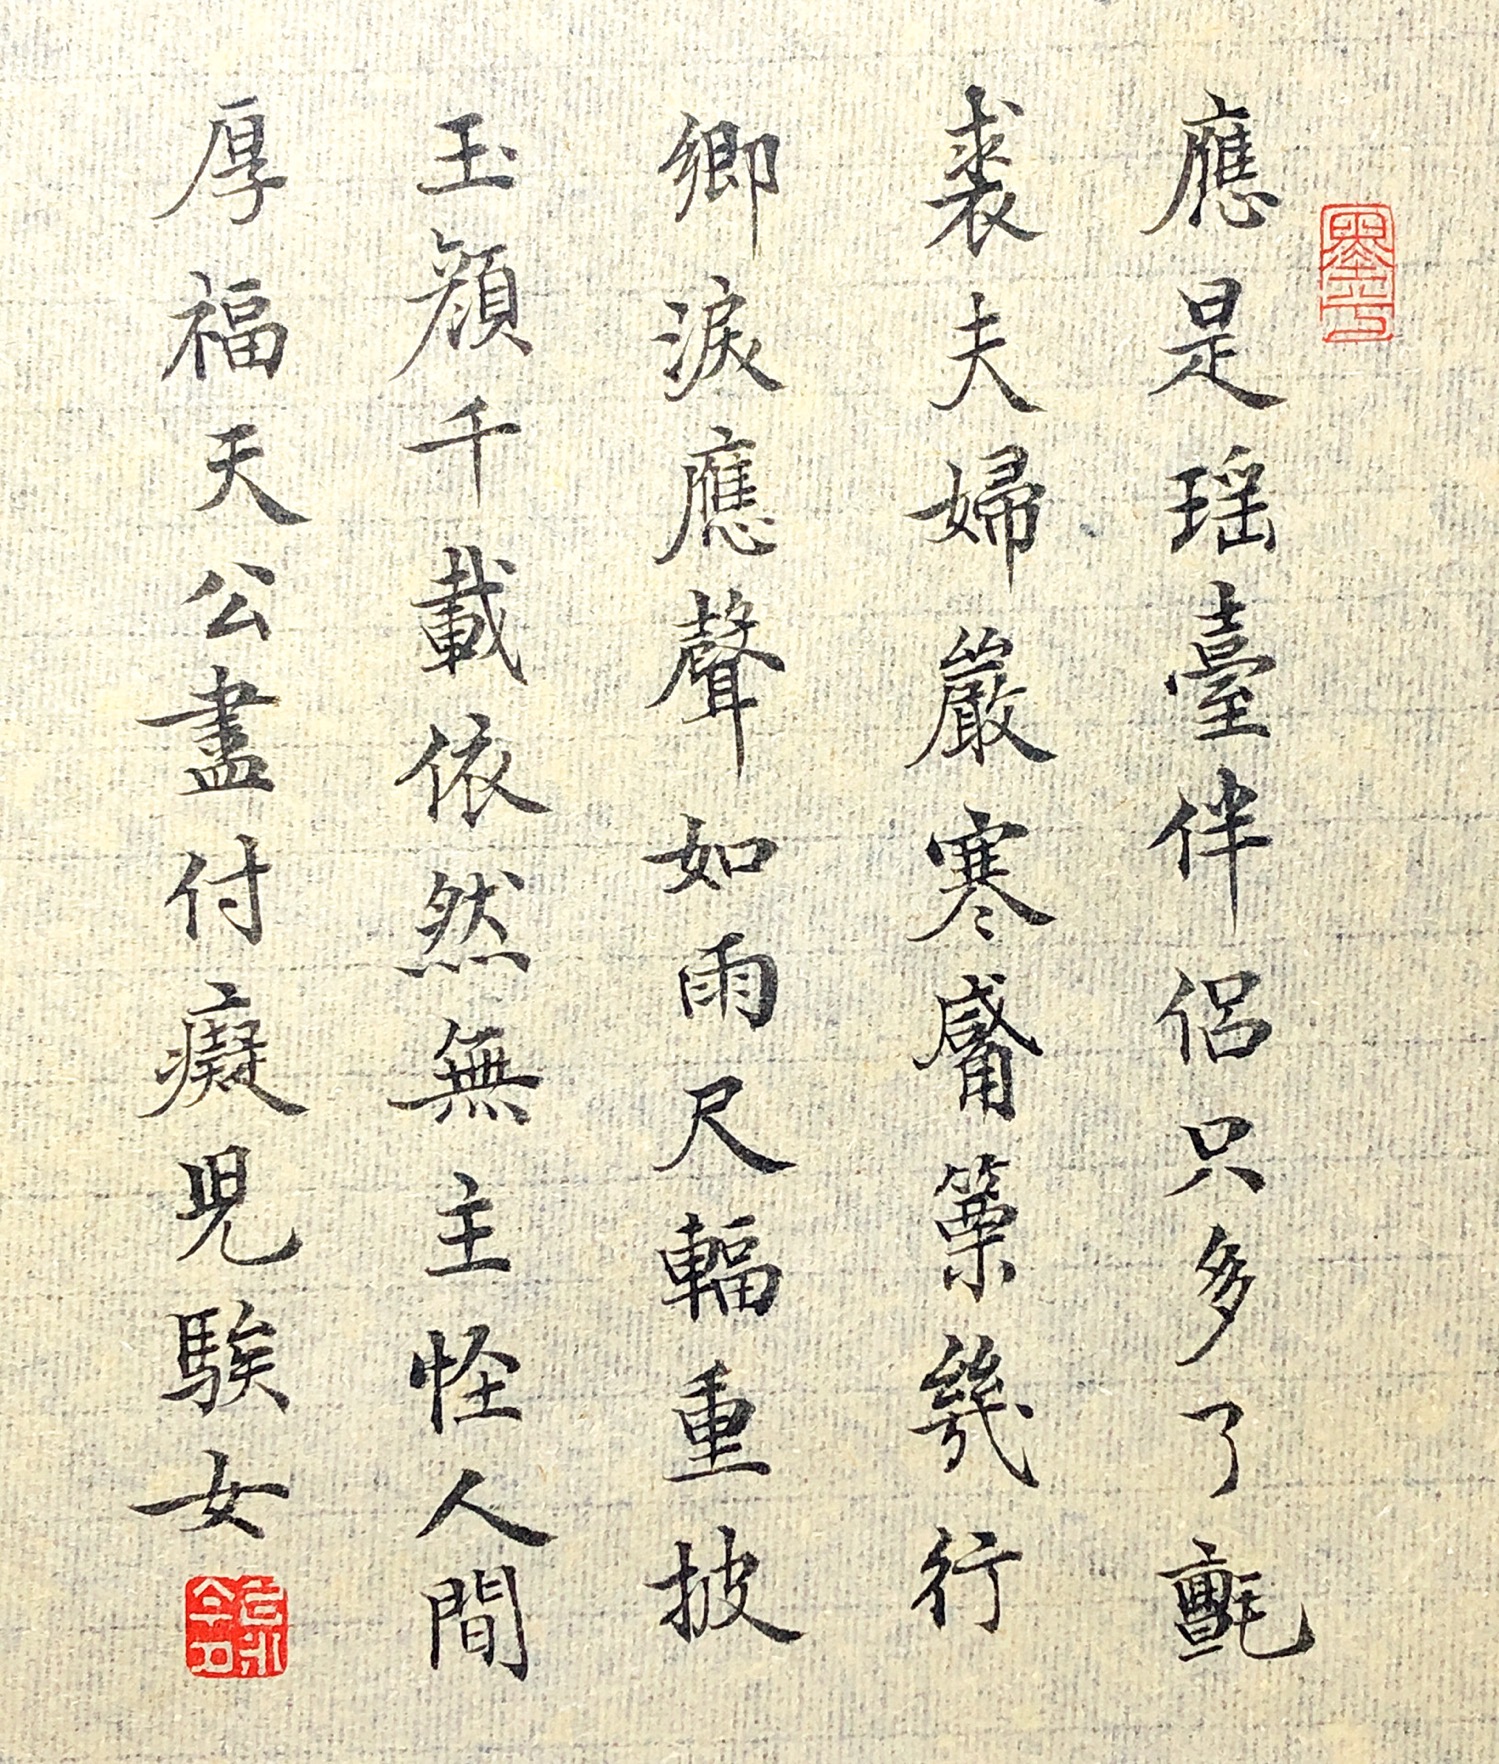 應是瑶臺伴侣只多了氈
裘夫婦嚴寒觱篥幾行
鄉淚應聲如雨尺輻重披
玉顔千載依然無主怪人間
厚福天公盡付癡兒騃女